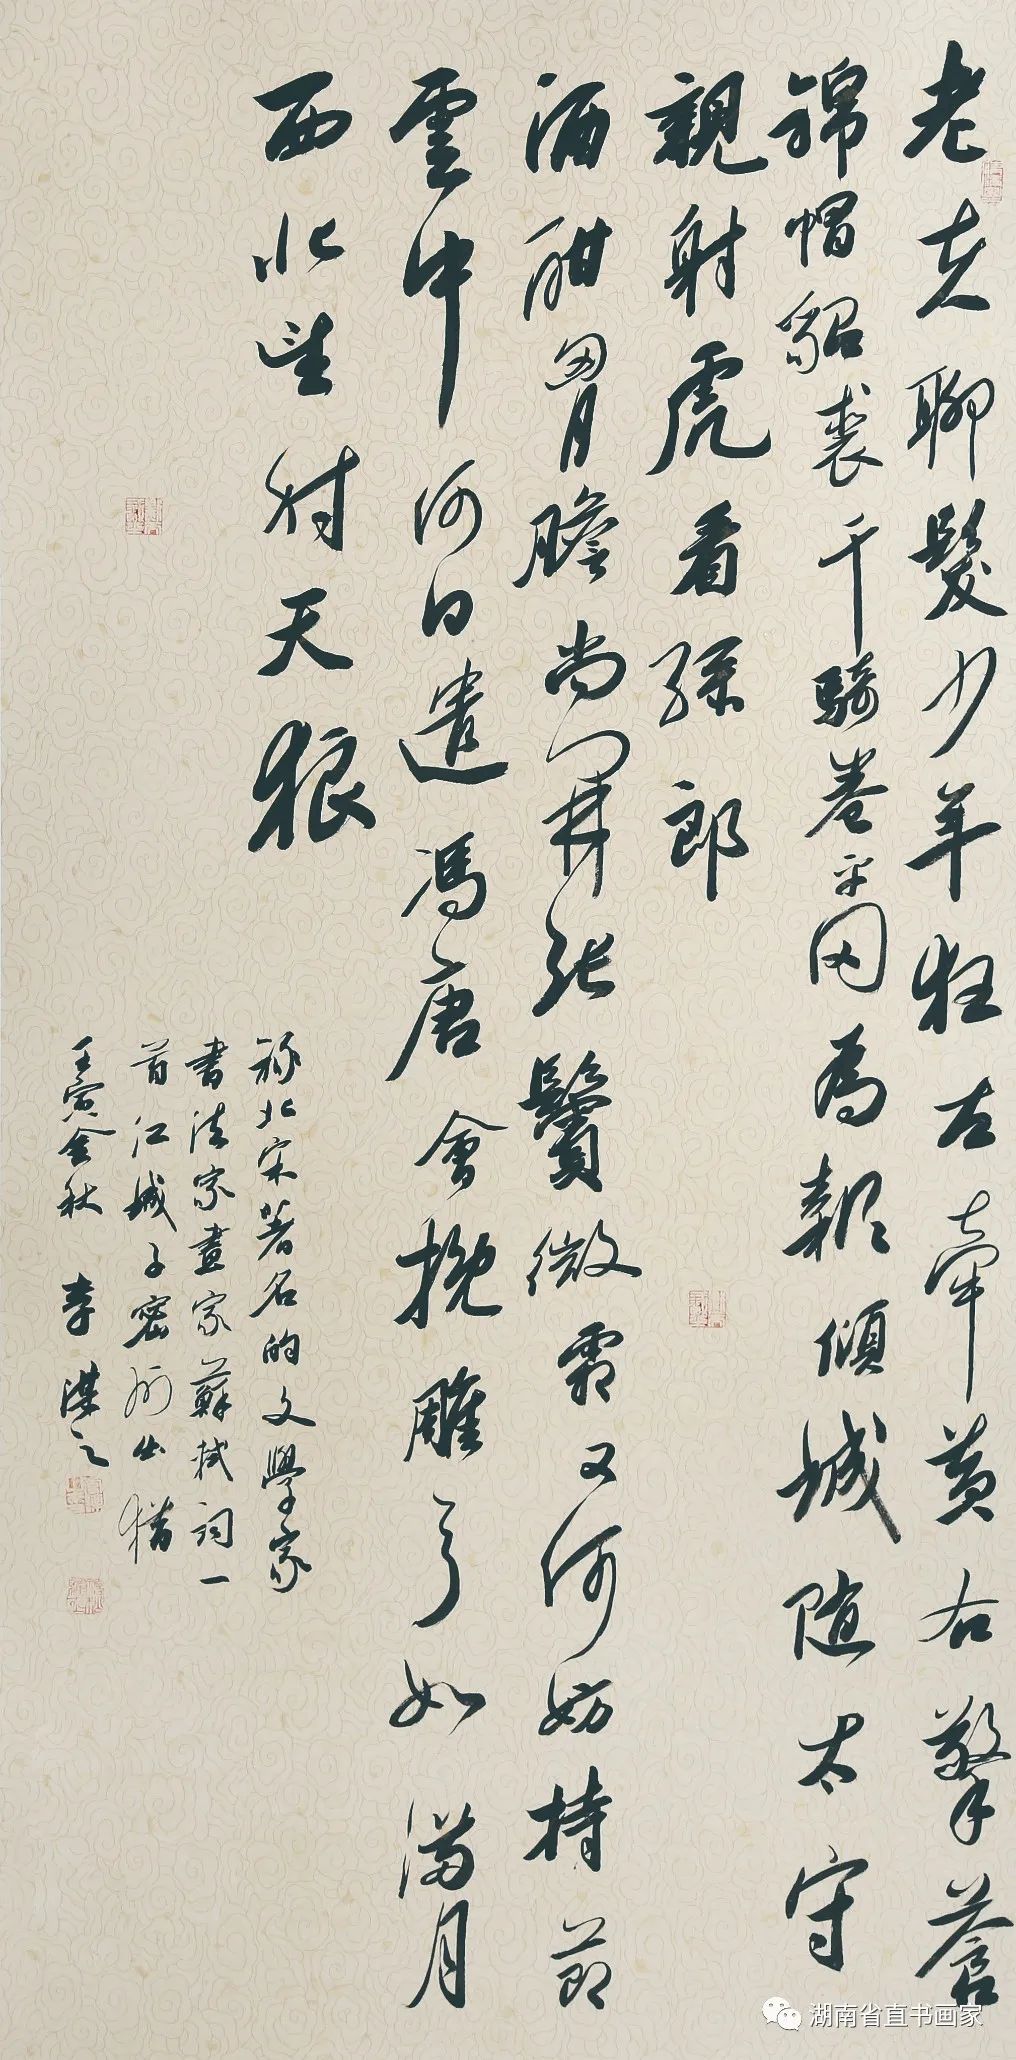 老夫聊髮少年狂左牽黃右擎蒼
錦帽貂裘千騎卷平岡為報傾城随太守
親射虎看孫郎
酒酣胷膽尚開張鬢微霜又何妨持節
雲中何日遣馮唐會挽雕弓如滿月
西北望射天狼
録北宋著名的文學家
書法家畫家蘇軾詞一
首江城子密州出猎
壬寅金秋 李
湖南省直书画家